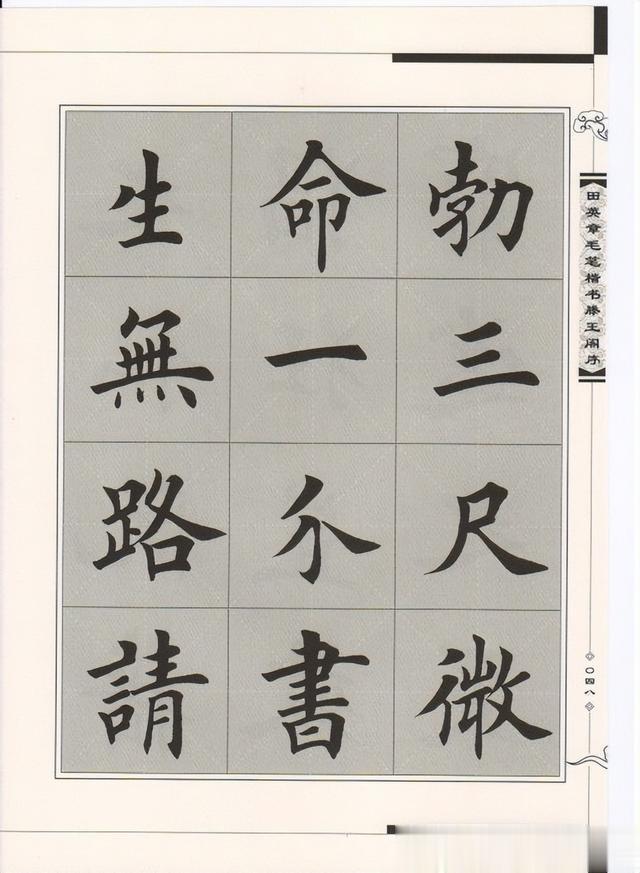 勃三尺微
命一介書
生無路請
田英章毛笔楷书滕王阁序
〇四八